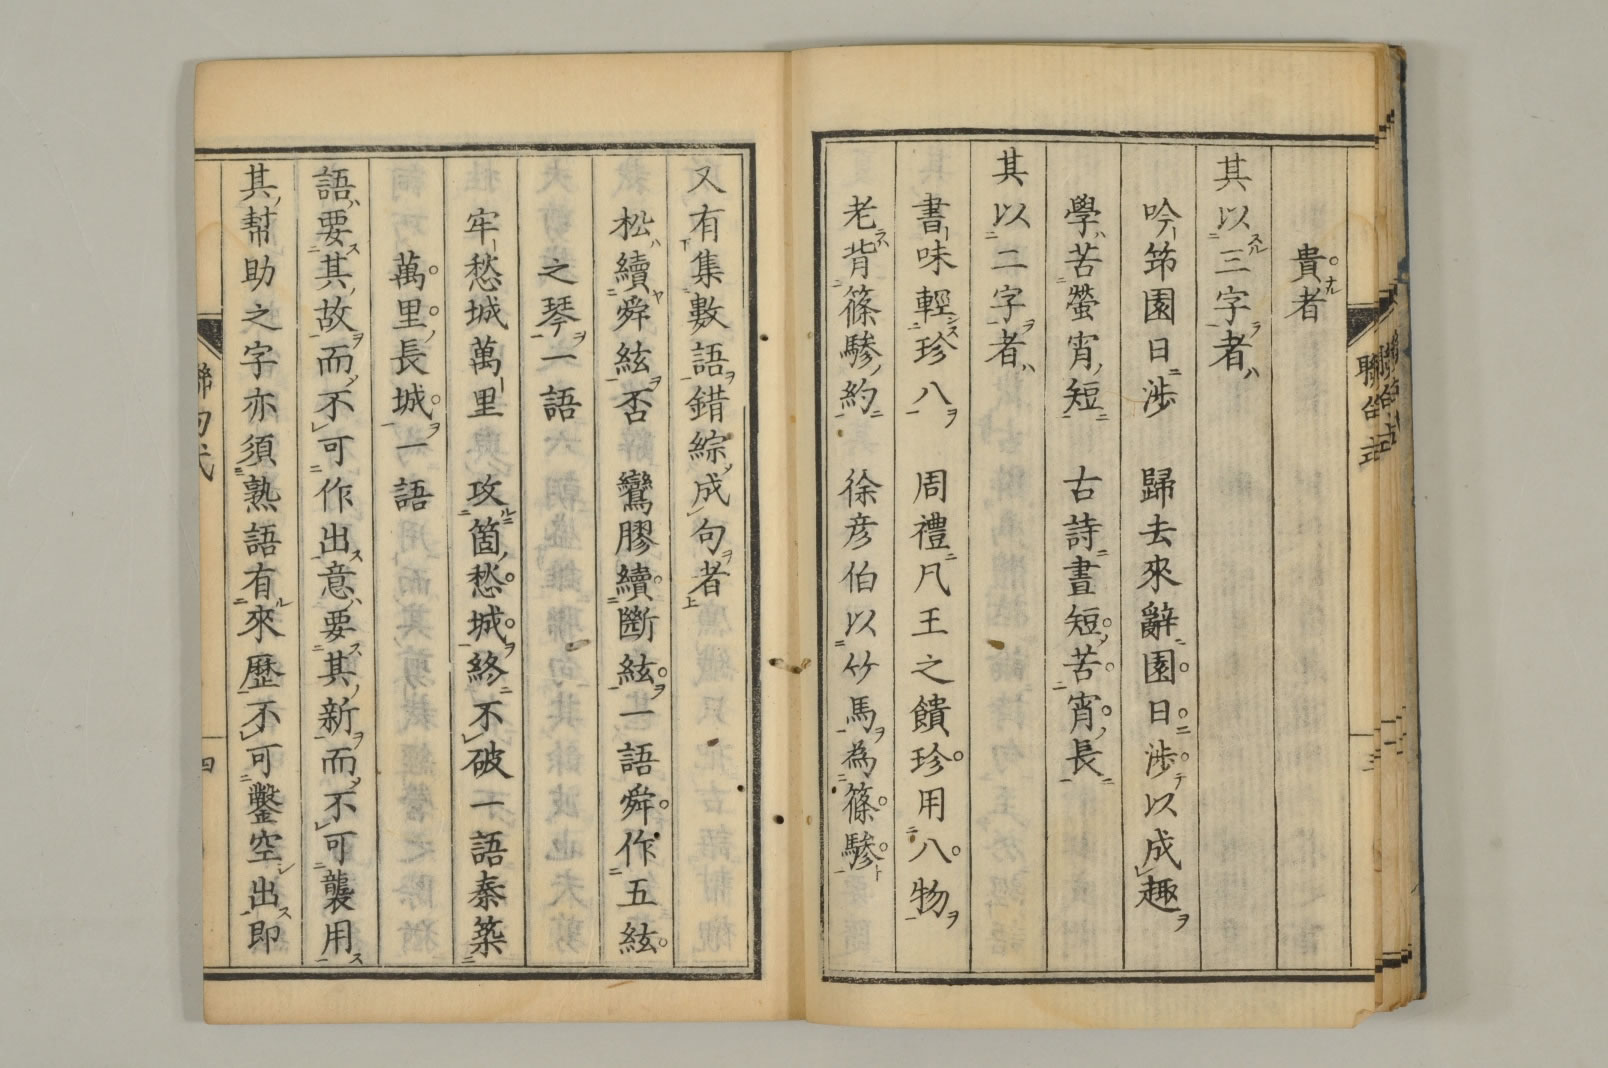 貴者
其以三字者
吟筇園日渉　歸去來辭園日渉以成趣
學苦螢宵短　古詩晝短苦宵長
其以二字者
書味輕珍八　周禮凡王之饋珍用八物
老背篠驂約　徐彦伯以竹馬為篠驂
又有集數語錯綜成句者
松續舜絃否　鸞膠續斷絃一語舜作五絃
之琴一語
牢愁城萬里　攻箇愁城終不破一語秦築
萬里長城一語
語要其故而不可作出意要其新而不可襲用
其幫助之字亦須熟語有來歴不可鑿空出即
四